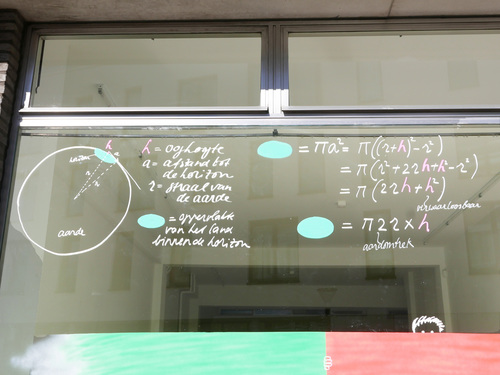 h
horizon
a
r
r
aarde
h = ooghoogte
a = afstand tot
de horizon
r = straal van
de aarde
= oppervlakte
van het land
binnen de horizon
= πa² = π((r+h)²-r²)
= π(r²+2rh+h²-r²)
= π(2rh+h²)
verwaarloosbaar
= π2r×h
aardomtrek